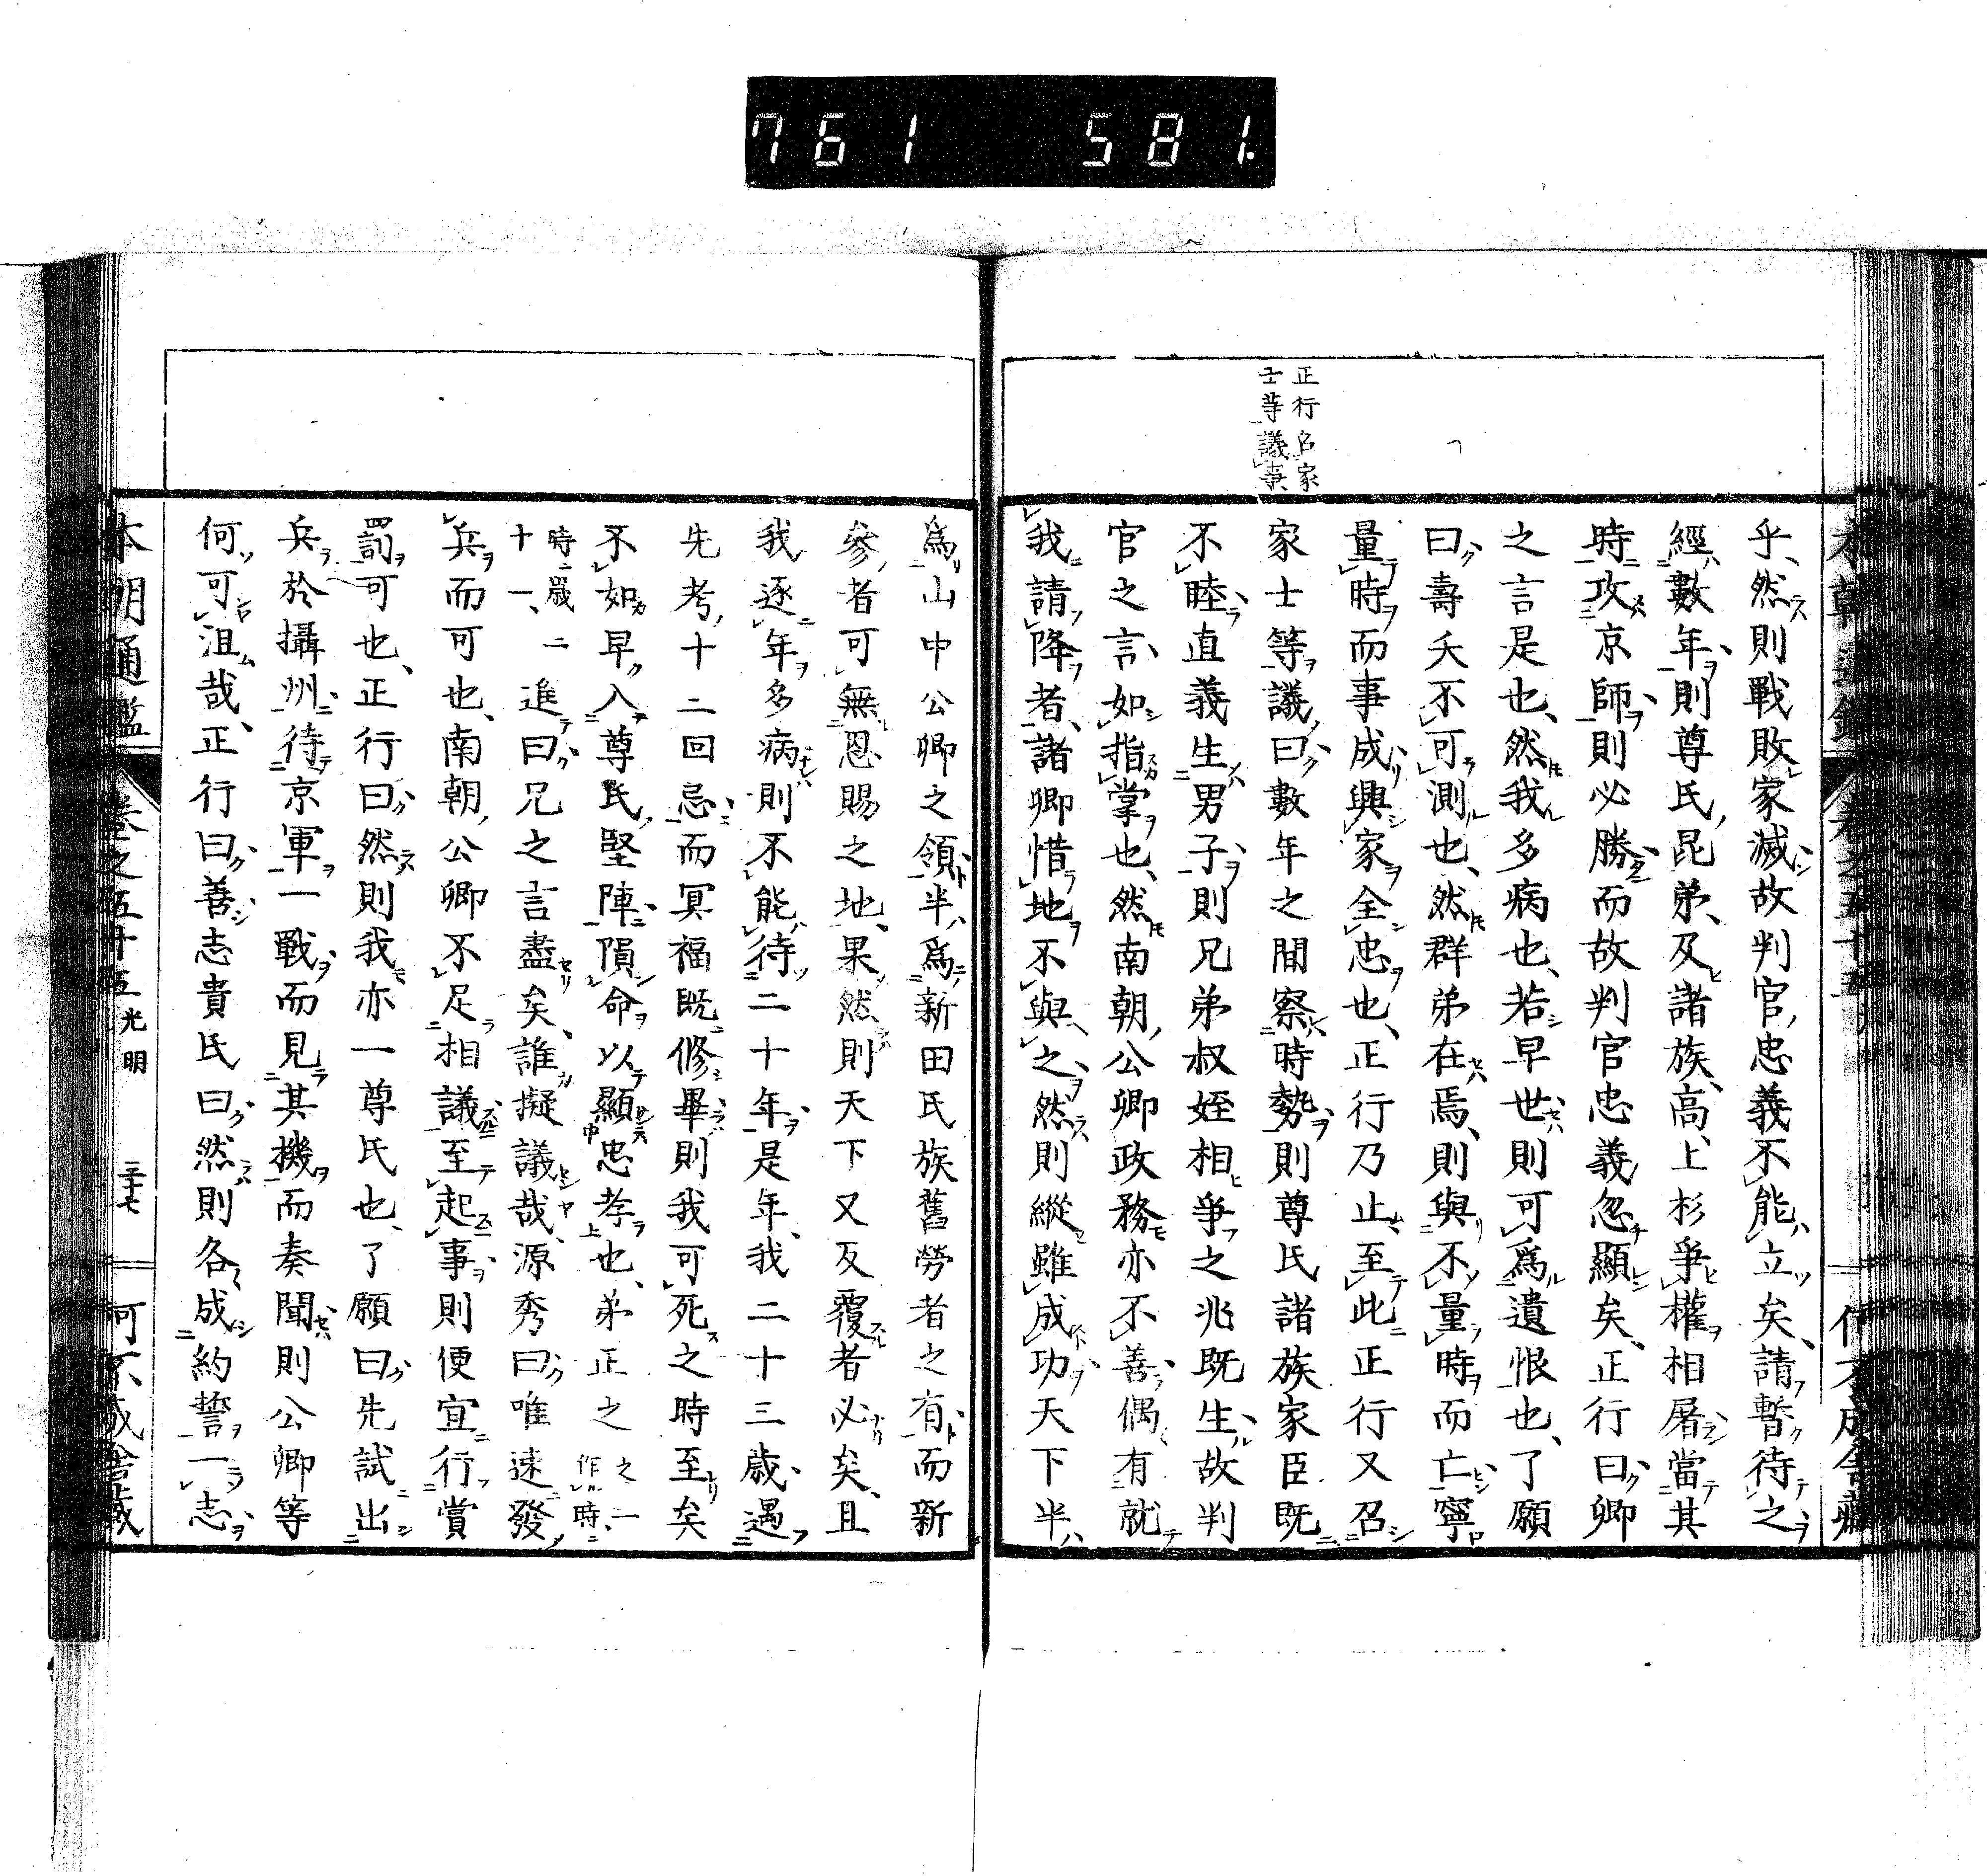 761 581.
正行召家
士等議事
乎、然則戰敗家滅故判官忠義不能立矣、請暫待之
經數年則尊氏昆弟、及諸族、高、上杉爭權相屠當其
時攻京師則必勝而故判官忠義忽顯矣、正行曰卿
之言是也、然我多病也、若早世則可爲遺恨也、了願
曰壽夭不可測也、然群弟在焉、則與不量時而亡寧
量時而事成興家全忠也、正行乃止、至此正行又召
家士等議曰數年之間察時勢則尊氏諸族家臣既
不睦直義生男子則兄弟叔姪相爭之兆既生故判
官之言如指掌也、然南朝公卿政務亦不善偶有就
我請降者、諸卿惜地不與之然則縱雖成功天下半
爲山中公卿之領半爲新田氏族舊勞者之有而新
參者可無恩賜之地、果然則天下又反覆者必矣、且
我逐年多病則不能待二十年是年、我二十三歲遇
先考十二回忌而冥福既修畢則我可死之時至矣
不如早入尊氏堅陣隕命以顯忠孝也、弟正之之一作時
時歲十一、二進曰兄之言盡矣、誰擬議哉、源秀曰唯速發
兵而可也、南朝公卿不足相議至起事則便宜行賞
罰可也、正行曰然則我亦一尊氏也、了願曰先試出
兵於攝州待京軍一戰而見其機而奏聞則公卿等
何可沮哉、正行曰善志貴氏曰然則各成約誓一志
本朝通鑑 卷之五十五 光明 三十七 可不成舍藏